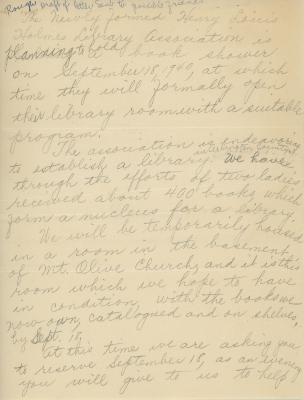 Rough draft of letter sent to possible friends
The Newly formed Henry Louis
Holmes Library Association is
planning to hold a book shower
on September 18, 1940, at which
time they will formally open
their library room with a suitable
program.
The association is endeavoring
to establish a library. We have
through the efforts of two ladies
received about 400 books which
form a nucleus for a library.
We will be temporarily housed
in a room in the basement
of Mt. Olive Church, and it is this
room which we hope to have
in condition, with the books we
now own, catalogued and on shelves,
by Sept. 18,
At this time we are asking you
to reserve September 18, as an evening
you will give to us to help